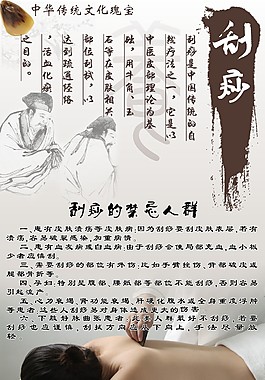 中华传统文化瑰宝
刮痧
刮痧是中国传统的自
然疗法之一，它是以
中医皮部理论为基
础，用牛角、玉
石等在皮肤相关
部位刮拭，以
达到疏通经络
，活血化瘀
之目的。
刮痧的禁忌人群
一、患有皮肤溃疡等皮肤病：因为刮痧要刮皮肤表层，若有
溃疡，容易破裂感染，加重病情。
二、患有血友病或白血病：由于刮痧会使局部充血，血小板
少者应慎刮。
三、需要刮痧的部位有外伤：比如手臂挫伤、背部破皮或
腿部骨折等。
四、孕妇：特别是腹部、腰骶部等部位不能刮痧，否则容易
引起流产。
五、心力衰竭、肾功能衰竭、肝硬化腹水或全身重度浮肿
等患者：这些人刮痧易对身体造成更大的伤害
六、下肢静脉曲张患者：此类人群最好不刮痧，若要
刮痧也应谨慎，刮拭方向应从下向上，手法尽量放
轻。